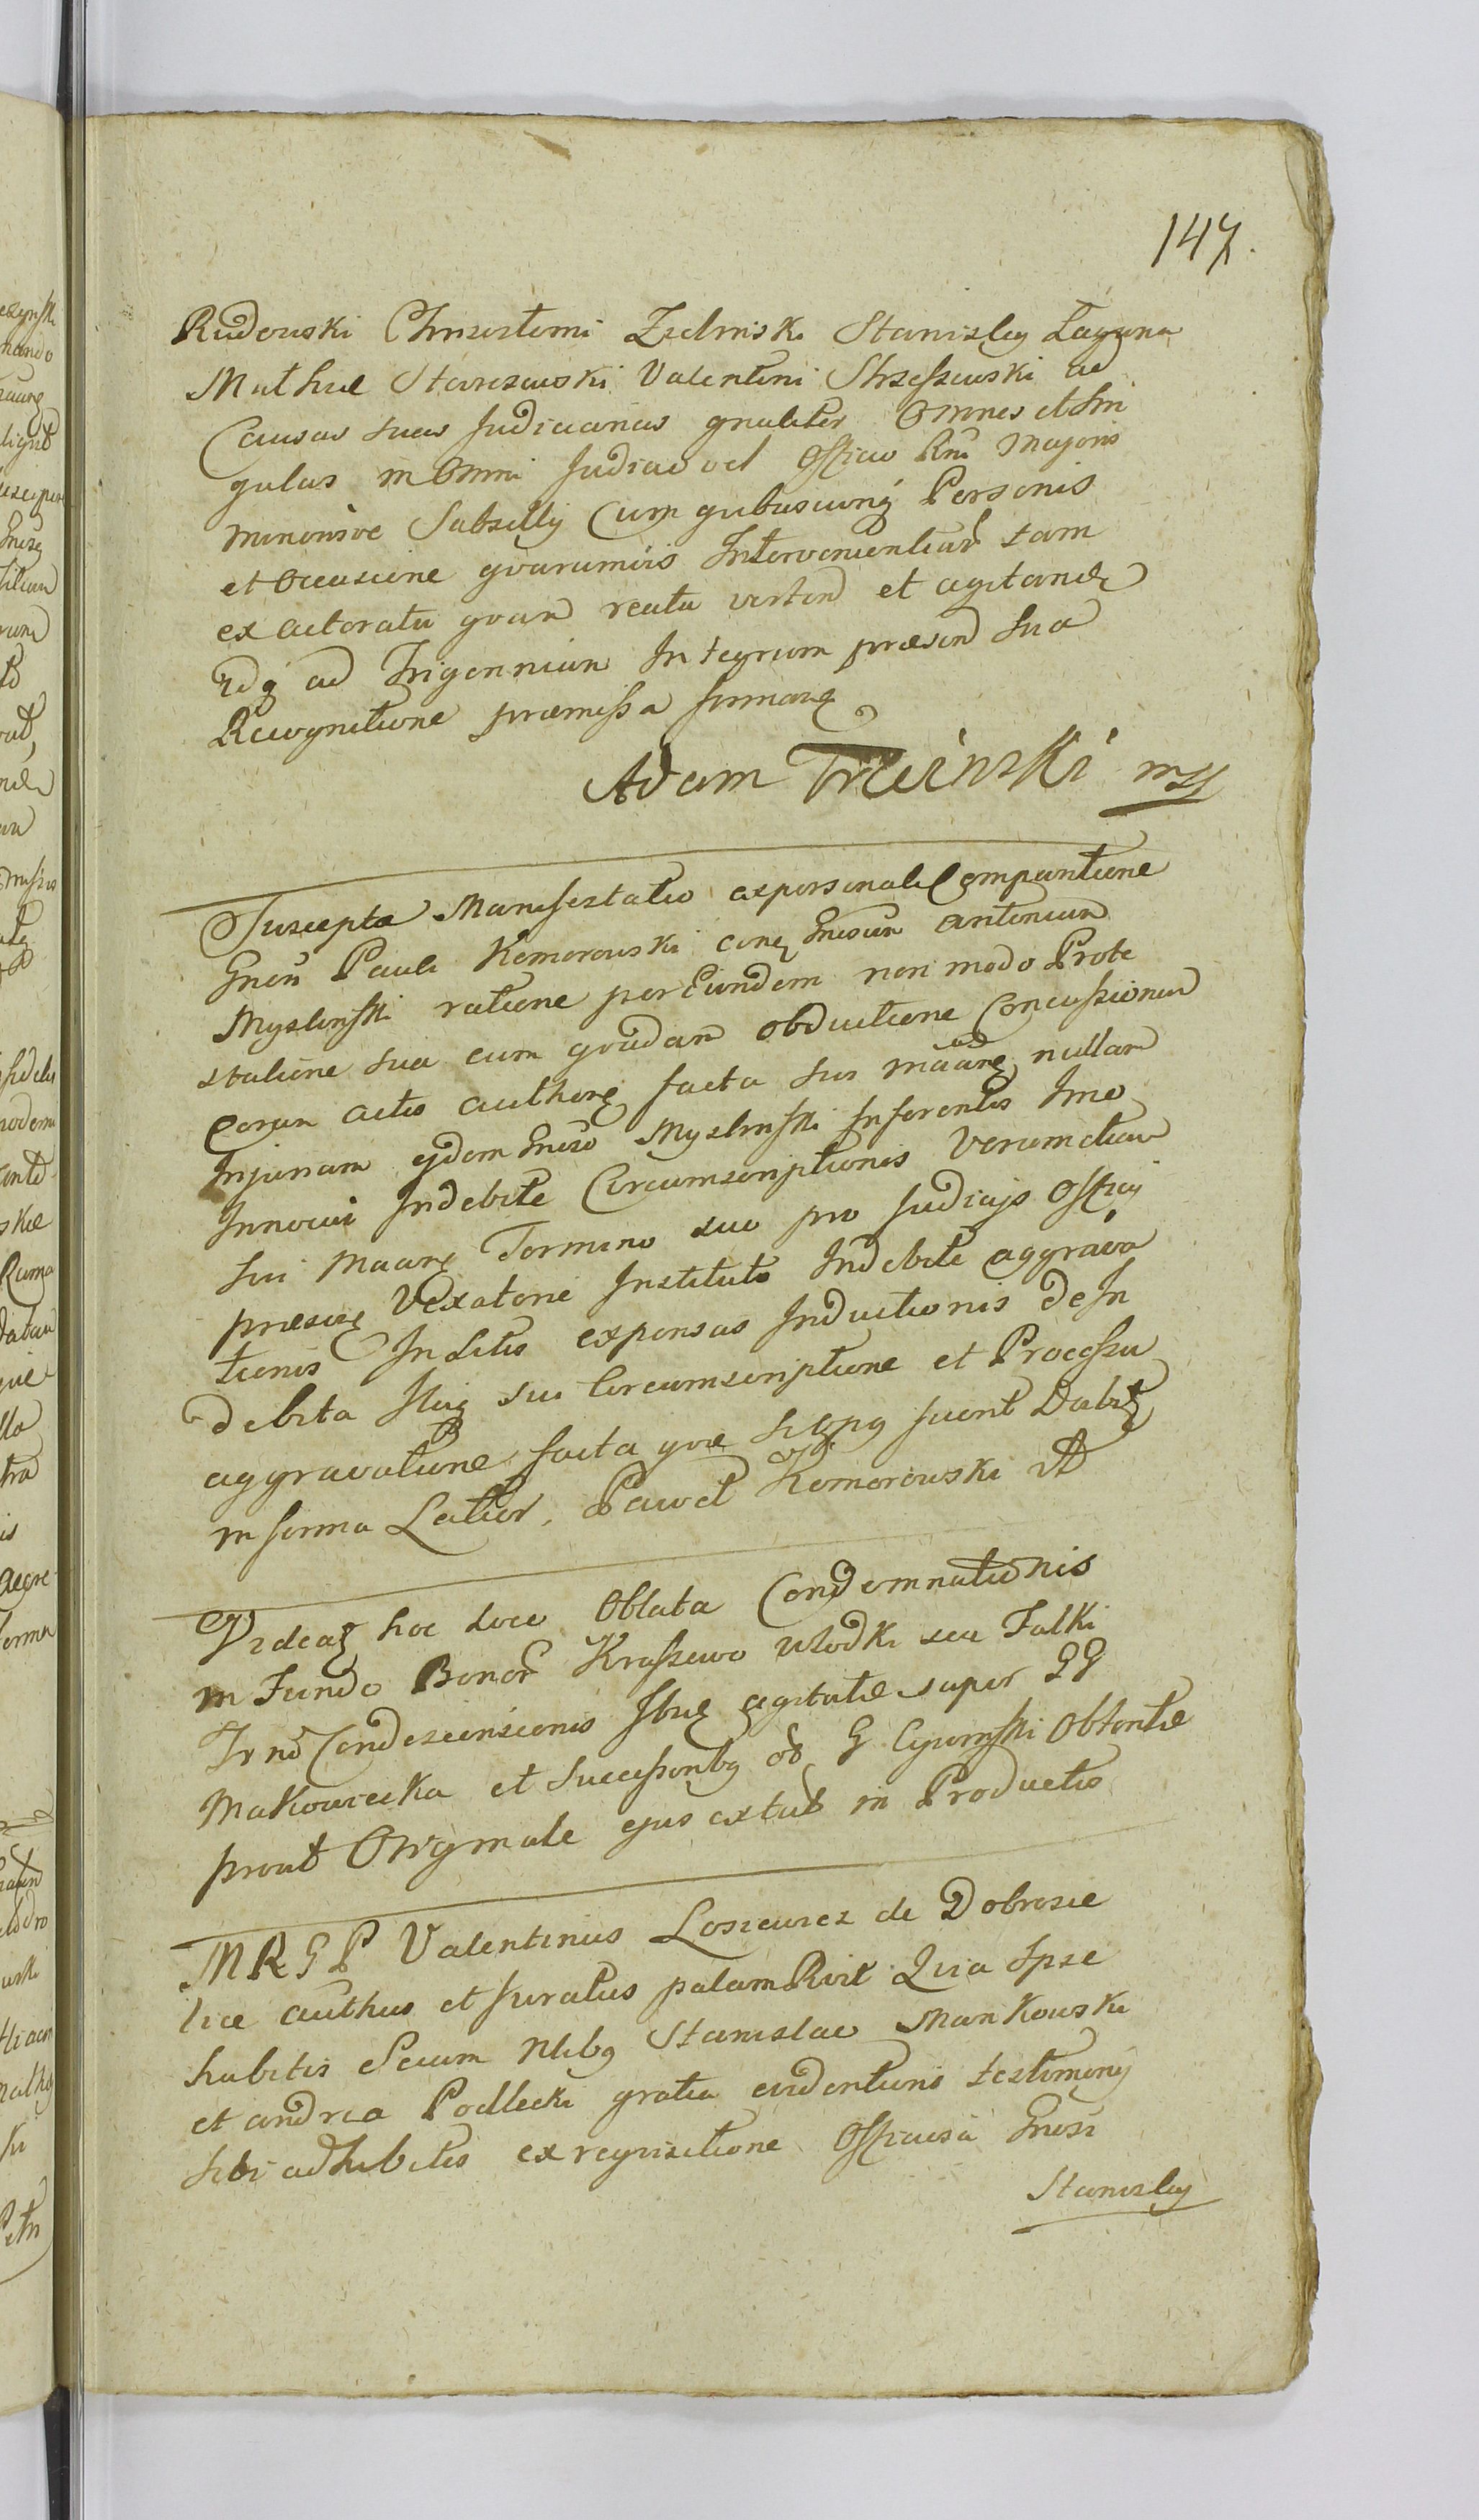 147.
Rudowski Chrisostomi Zielinski Stanislai Laguna
Mathiae Starczewski Valentini Strzeszewski ad
Causas suas Judiciarias gnaliter Omnes et Sin
gulas in Omni Judicio vel Officio Rni Majoris
minorisve Subsellij Cum quibusvis Personis
et Occasione quarumvis Intervenientiar tam
ex actoratu quam reatu vertend et agitand
Idq ad Trigennium Integrum praesend sua
Recognitione praemissa formanq
Adam Trzcinski mp
Suscepta Manifestatio ex personali Comparitione
Gnosi Pauli Komorowski conq Gnosum Antonium
Myslinski ratione per Eundem non modo Prote
statione sua cum quadam obductione Concussionum
Coram actis authenq facta sui maanq nullam
Injuriam ejdem Gnoso Myslinski Inferentis Imo
Innocui Indebite Circumscriptionis Verum etiam
sui maanq Termino suo pro Judicijs Officij
praesenq Vexatorie Instituto Indebite aggrava
tionis In Litis expensas Inductionis de In
debita Itaq sui Circumscriptione et Processu
aggravatione facta quae si opus fuerit Dabit
in forma Latior. Paweł Komorowski
Videat hoc loco Oblata Condemnationis
in Fundo Bonor Kraszewo Włodki seu Falki
Trnō Condescensionis Ibnq agitatae super GG
Makowiecka et Successoribq ob G Cywinski Obtentae
prout Originale ejus extat in Productis
MRGP Valentinus Losiewicz de Dobrosie
lice authus et Juratus palam Rvit Quia Ipse
habitis Secum Nlibq Stanislao Mankowski
et Andrea Podlecki gratia evidentioris testimonij
sibi adhibitis ex requisitione Officiosa Gnosi
Stanislai